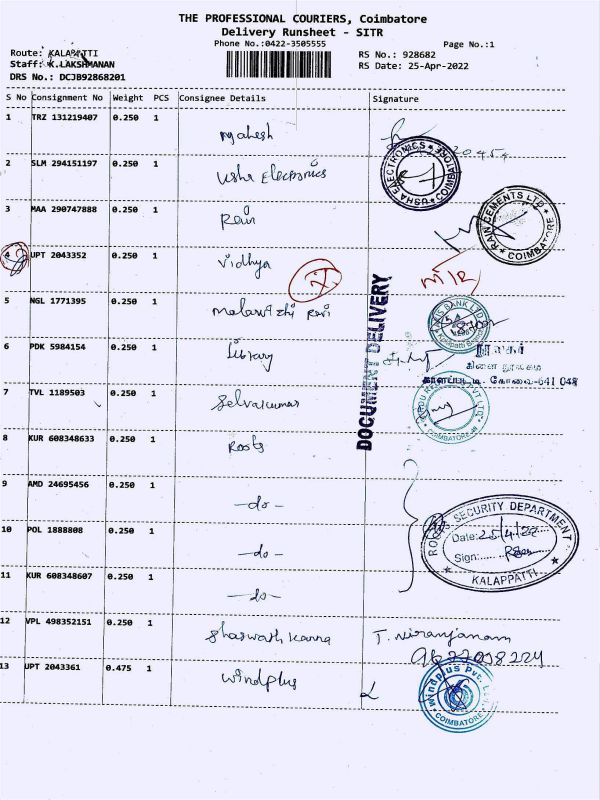 THE PROFESSIONAL COURIERS, Coimbatore
Delivery Runsheet - SITR
Phone No.:0422-3505555
Page No.:1
Route: KALAPATTI
Staff: K.LAKSHMANAN
DRS No.: DCJB92868201
RS No.: 928682
RS Date: 25-Apr-2022
S No Consignment No Weight PCS Consignee Details Signature
1 TRZ 131219407 0.250 1 Mahesh
2 SLM 294151197 0.250 1 Usha Electronics
USHA ELECTRONICS COIMBATORE
3 MAA 290747888 0.250 1 Ravi
RAIN CEMENTS LTD COIMBATORE
4 UPT 2043352 0.250 1 Vidhya
5 NGL 1771395 0.250 1 Malarvizhi Ravi
AXIS BANK LTD
DOCUMENT DELIVERY
6 PDK 5984154 0.250 1 Library
நூலகர்
கிளை நூலகம்
காளப்பட்டி. கோவை-641 048
7 TVL 1189503 0.250 1 Selvakumar
PVT LTD
COIMBATORE-48
8 KUR 608348633 0.250 1 Roots
9 AMD 24695456 0.250 1 -do-
10 POL 1888808 0.250 1 -do-
11 KUR 608348607 0.250 1 -do-
ROOTS SECURITY DEPARTMENT
Date: 25/4/22
Sign:
KALAPPATTI
12 VPL 498352151 0.250 1 Shaswath Kanna T. Niranjanam
13 UPT 2043361 0.475 1 Windplus
Windplus Pvt. Ltd.
COIMBATORE